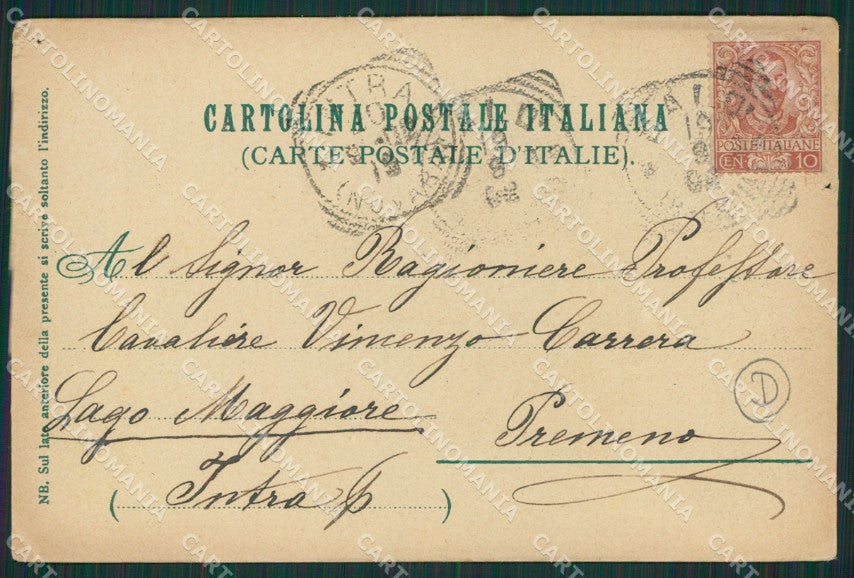 CARTOLINA POSTALE ITALIANA
(CARTE POSTALE D'ITALIE).
POSTE ITALIANE
CEN. 10
INTRA
(NOVARA)
Al Signor Ragioniere Professore
Cavaliére Vimenzo Carrera
Lago Maggiore
Premeno
D
(Intra p)
NB. Sul lato anteriore della presente si scrive soltanto l'indirizzo.
CARTOLINOMANIA